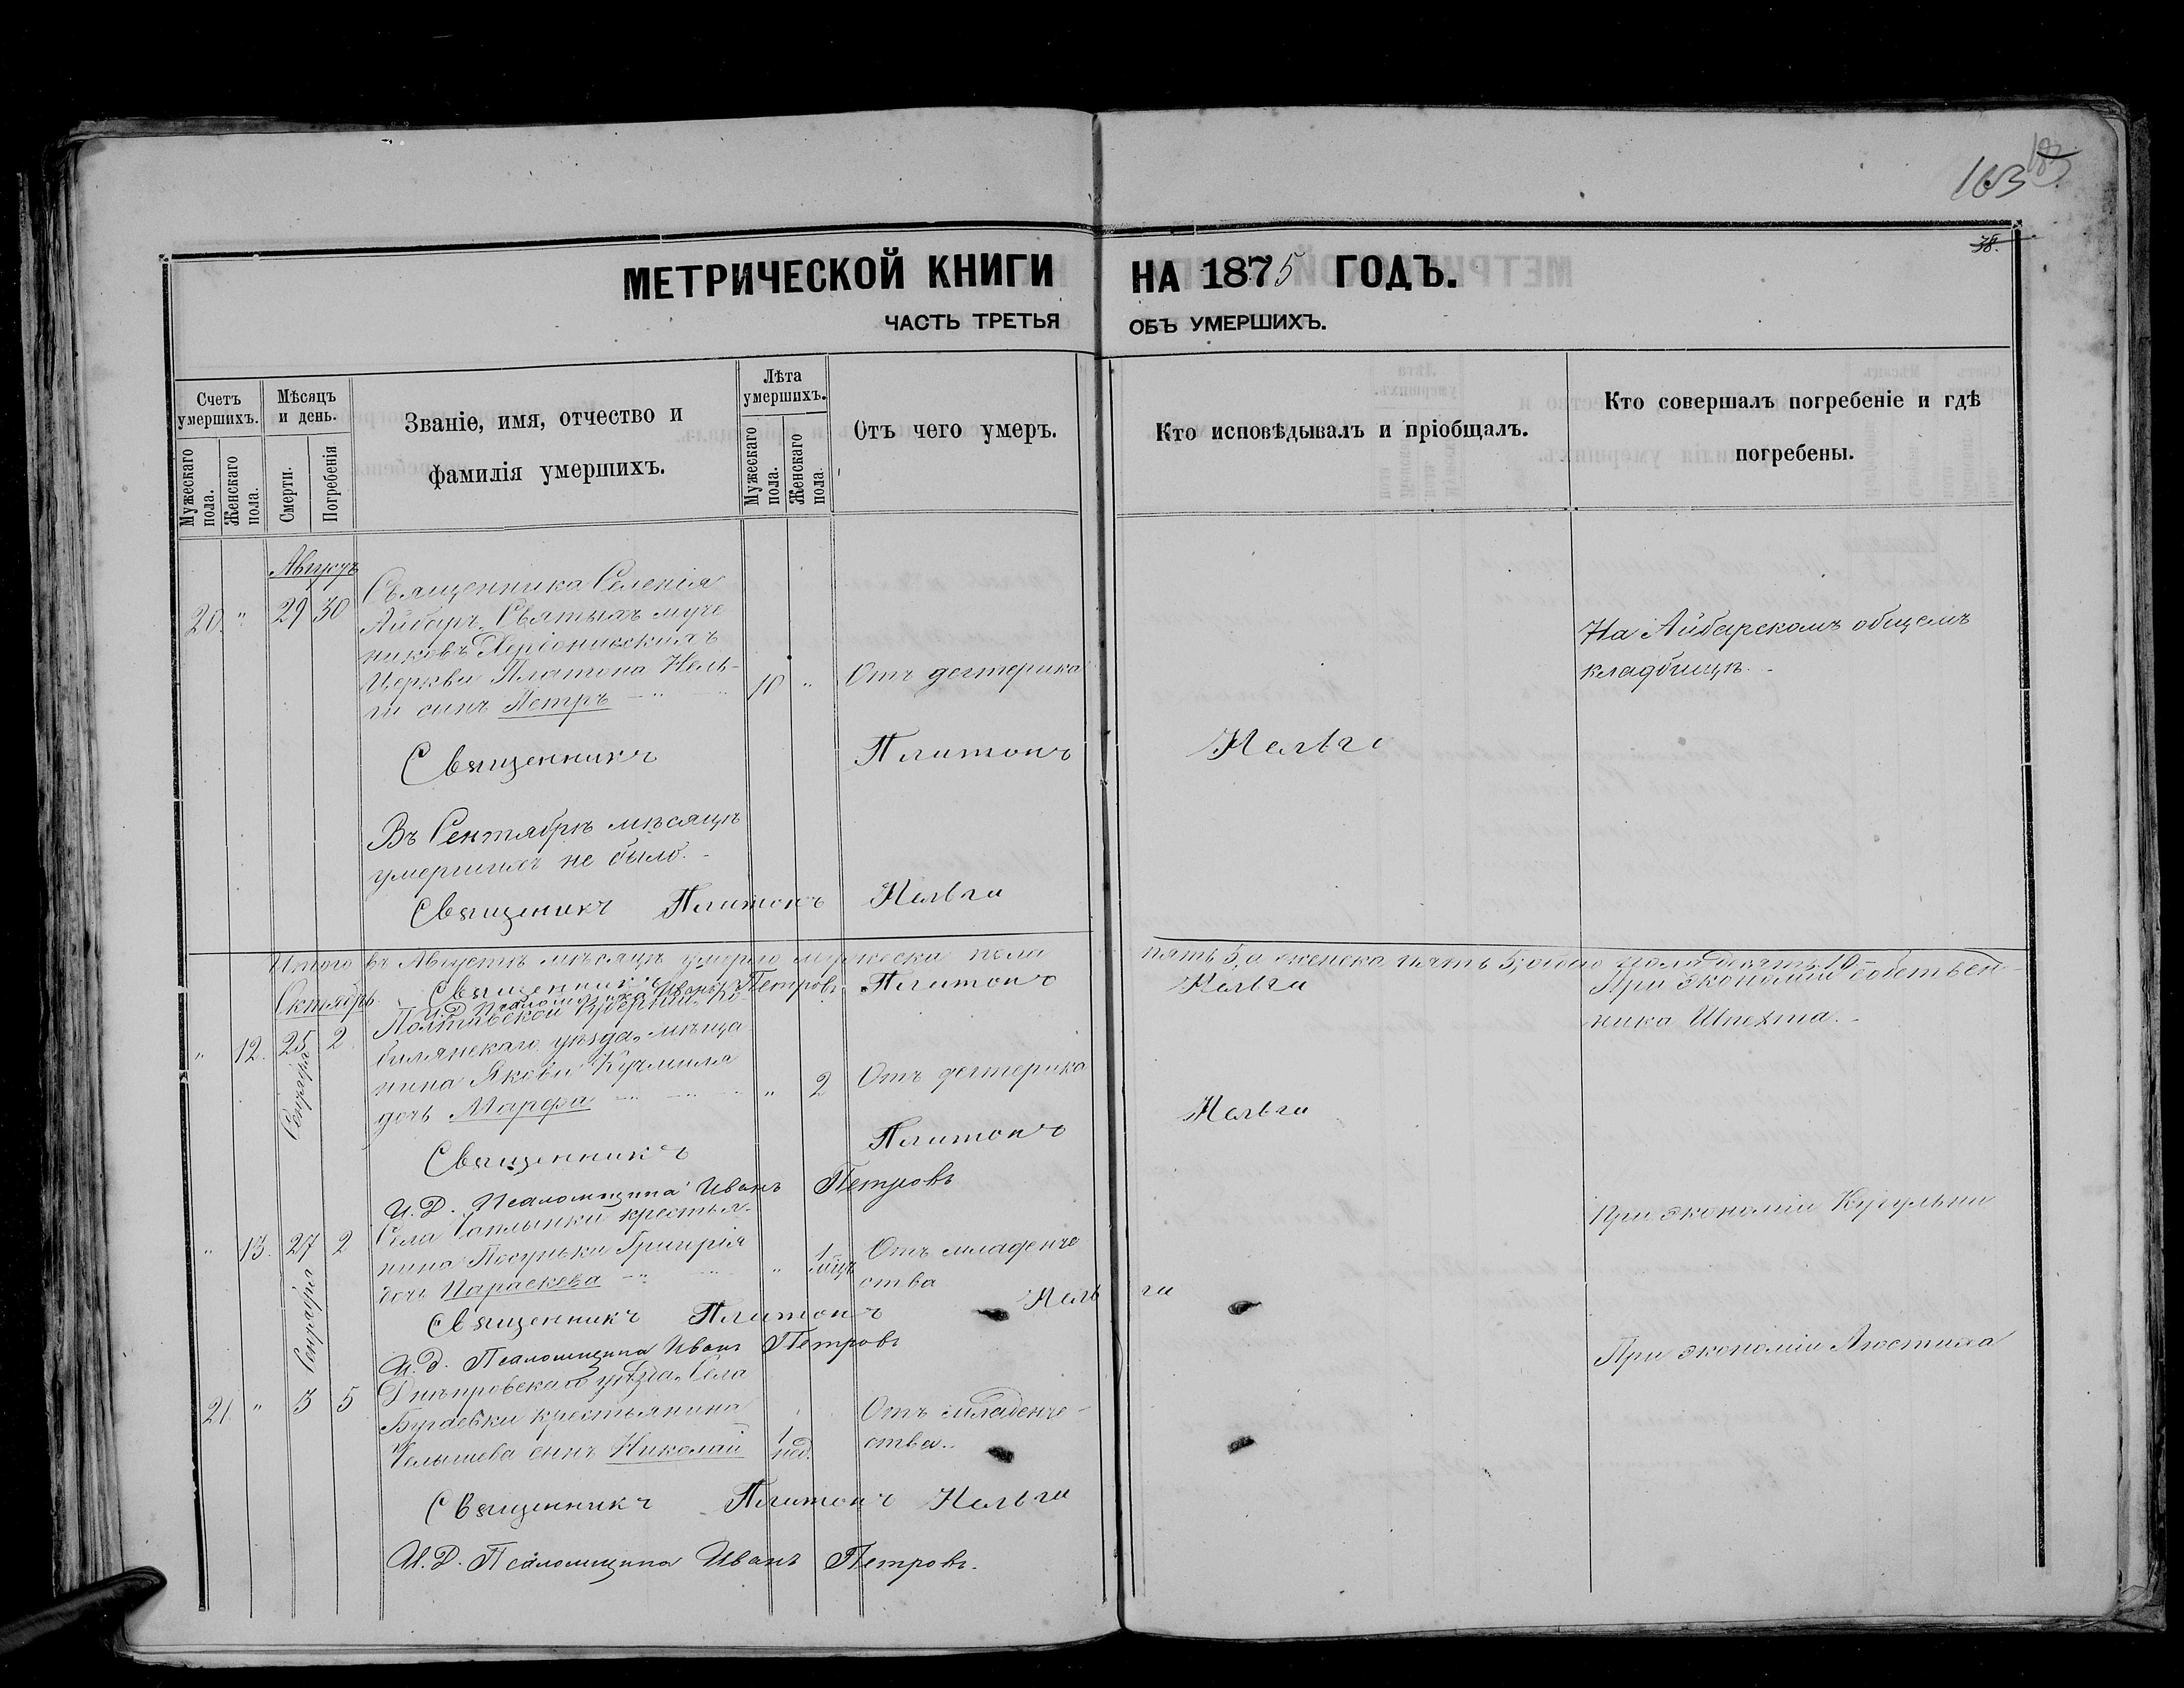 163
183
38.
МЕТРИЧЕСКОЙ КНИГИ НА 1875 ГОДЪ.
ЧАСТЬ ТРЕТЬЯ ОБЪ УМЕРШИХЪ.
Счетъ умершихъ.
Мужескаго пола.
Женскаго пола.
Мѣсяцъ и день.
Смерти.
Погребенія
Званіе, имя, отчество и
фамилія умершихъ.
Лѣта умершихъ.
Мужескаго пола.
Женскаго пола.
Отъ чего умеръ.
Кто исповѣдывалъ и пріобщалъ.
Кто совершалъ погребеніе и гдѣ
погребены.
Августъ
20. " 29 30
Священника Селенія
Айбаръ, Святыхъ муче
никовъ Херсонискихъ
Церкви Платона Нель-
ги сынъ Петръ
10 "
Отъ дегтерика
На Айбарскомъ общемъ
кладбищѣ.
Священникъ Платонъ Нельга
Въ Сентябрѣ мѣсяцѣ
умершихъ не было.
Священикъ Платонъ Нельга
Итого въ Августѣ мѣсяцѣ умерло мужеска пола пять 5, а женска пять 5, обоего пола десять 10
Священникъ Платонъ Нельга
И.Д. Псаломщика Иванъ Петровъ
Октябрь
" 12. 25 2
Сентября
Полтавской Губерніи, Ко-
билянскаго уѣзда, мѣща
нина Якова
дочь Марфа
" 2
Отъ дегтерика
При экономіи собствен
ника Шпехта.
Священникъ Платонъ Нельга
И.Д. Псаломщика Иванъ Петровъ
" 13. 27 2
Сентября
Села крестья-
нина Григорія
дочь Параскева
" 1 мѣц
Отъ младенче
ства
При экономіи
Священникъ Платонъ Нельга
И.Д. Псаломщика Иванъ Петровъ
21. " 3 5
Днѣпровскаго уѣзда, Села
крестьянина
сынъ Николай
1 нед.
Отъ младенче-
ства..
При экономіи
Священникъ Платонъ Нельга
И.Д. Псаломщика Иванъ Петровъ.